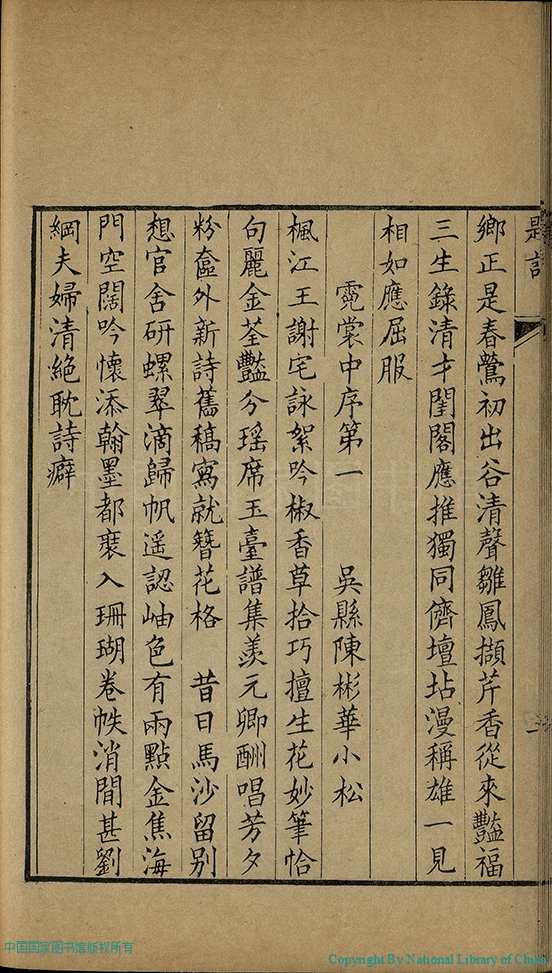 鄉正是春鶯初出谷清聲雛鳳擷芹香從來豔福
三生錄清才閨閣應推獨同儕壇坫漫稱雄一見
相如應屈服
霓裳中序第一 吳縣陳彬華小松
楓江王謝宅詠絮吟椒香草拾巧擅生花妙筆恰
句麗金荃豔分瑶席玉臺譜集羨元卿酬唱芳夕
粉奩外新詩舊稿寫就簪花格 昔日馬沙留别
想官舍研螺翠滴歸帆遥認岫色有兩點金焦海
門空闊吟懷添翰墨都裒入珊瑚卷帙消閒甚劉
綱夫婦清絶耽詩癖
中国国家图书馆版权所有
Copyright By National Library of China